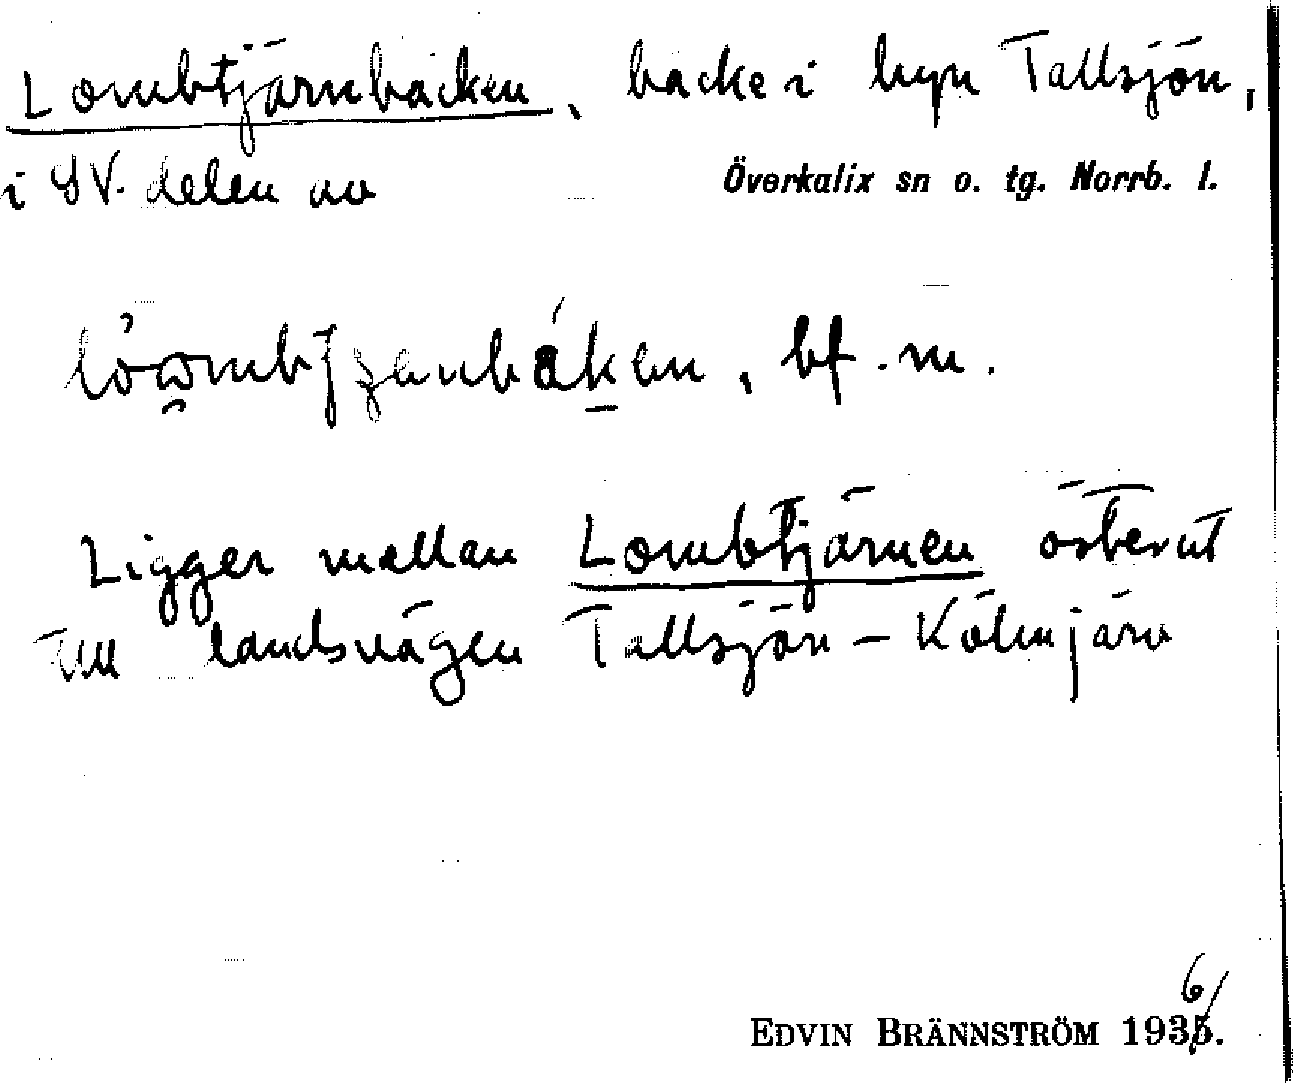 Lombtjärnbacken, backe i byn Tallsjön,
i SV. delen av Överkalix sn o. tg. Norrb. l.
bf. m.
Ligger mellan Lombtjärnen österut
till landsvägen Tallsjön – Kölmjärv
EDVIN BRÄNNSTRÖM 1936.